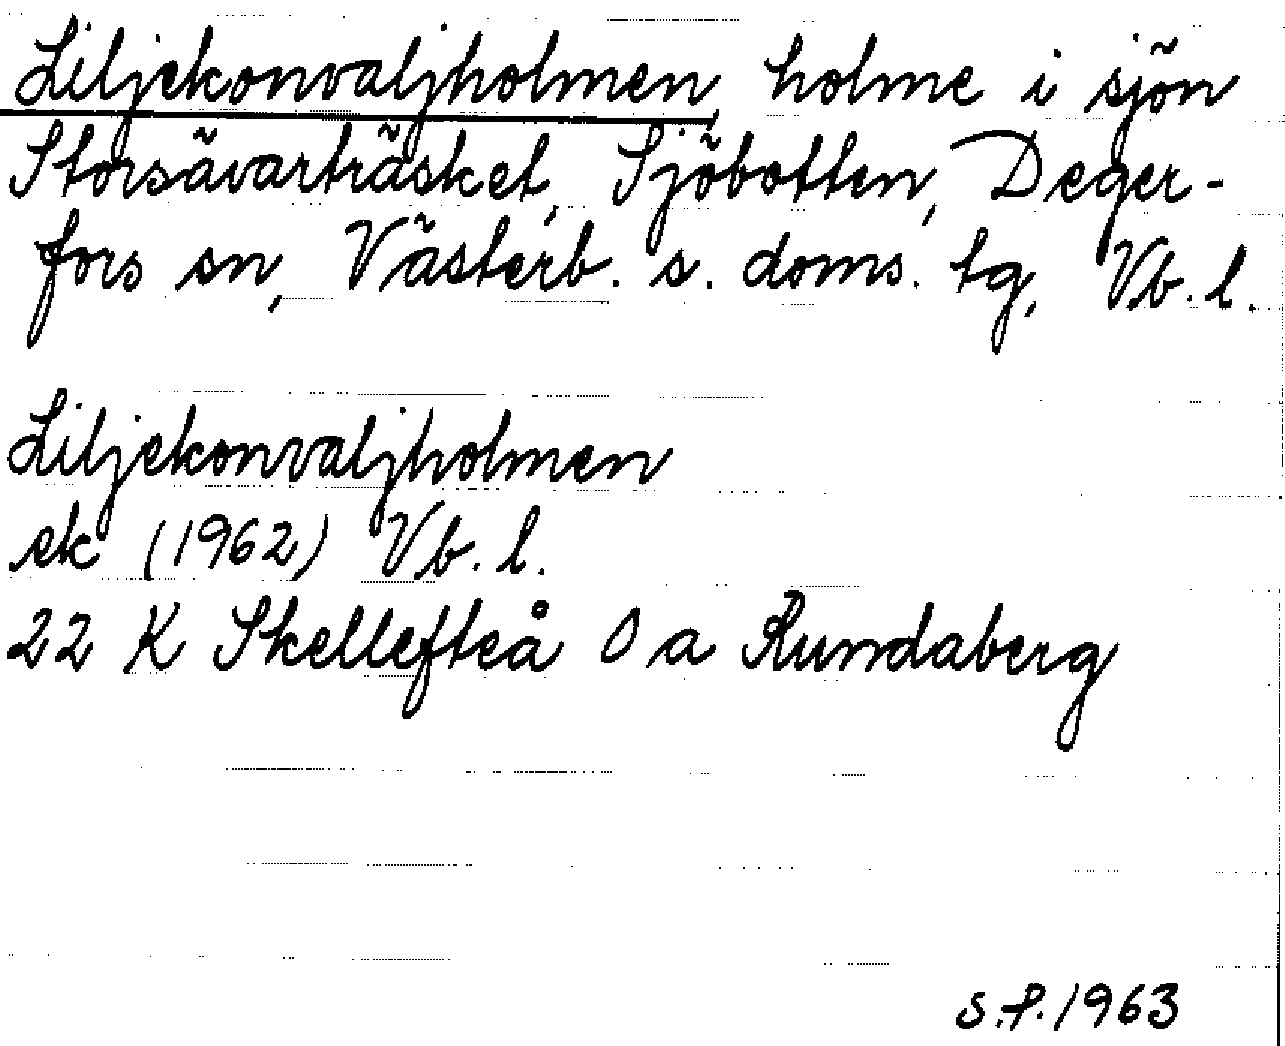 Liljekonvaljholmen, holme i sjön
Storsävarträsket, Sjöbotten, Deger-
fors sn, Västerb. s. doms. tg, Vb. l.
Liljekonvaljholmen
ek (1962) Vb. l.
22 K Skellefteå 0 a Rundaberg
S.P. 1963